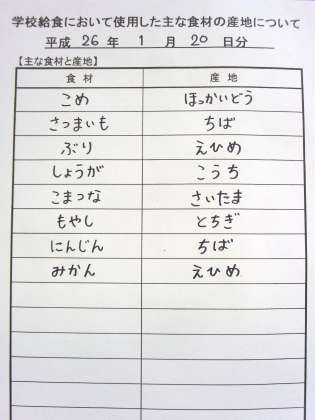 学校給食において使用した主な食材の産地について
平成 26 年 1 月 20 日分
【主な食材と産地】
食材 産地
こめ ほっかいどう
さつまいも ちば
ぶり えひめ
しょうが こうち
こまつな さいたま
もやし とちぎ
にんじん ちば
みかん えひめ